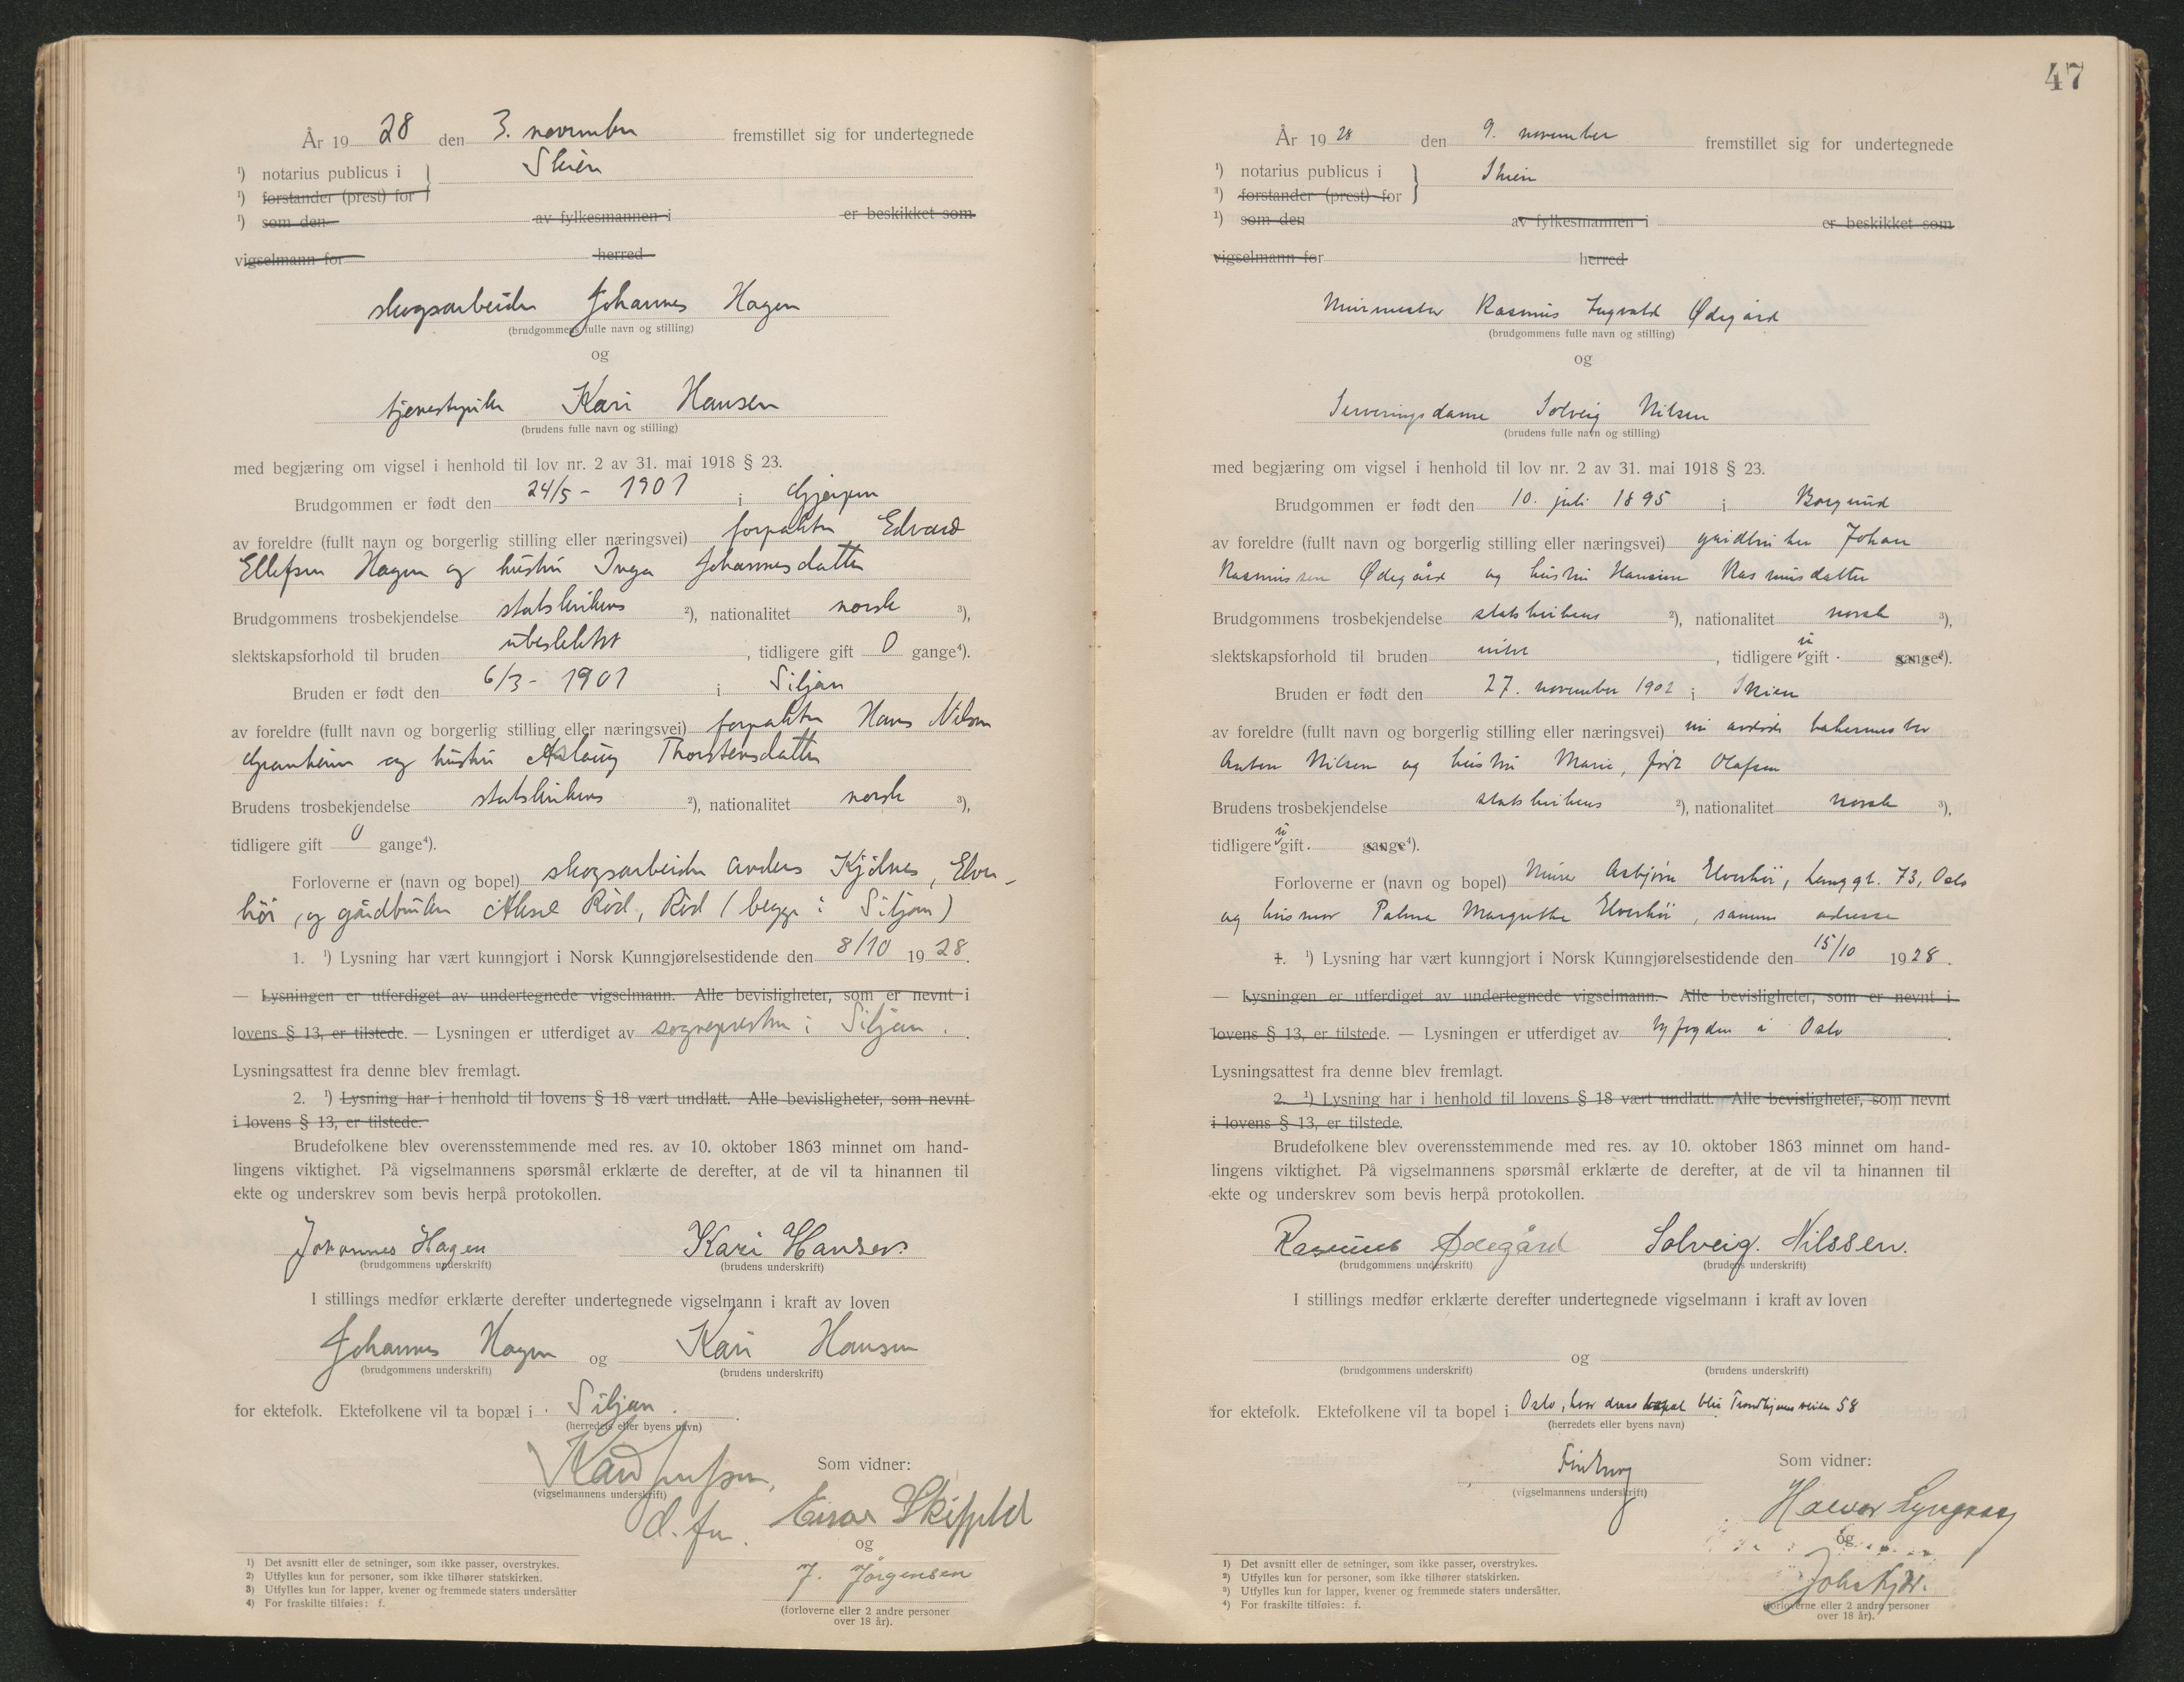 År 19 28 den 3. november fremstillet sig for undertegnede
¹) notarius publicus i } Skien
¹) forstander (prest) for
¹) som den av fylkesmannen i er beskikket som
vigselmann for herred
skogsarbeider Johannes Hagen
(brudgommens fulle navn og stilling)
og
tjenestepike Kari Hansen
(brudens fulle navn og stilling)
med begjæring om vigsel i henhold til lov nr. 2 av 31. mai 1918 § 23.
Brudgommen er født den 24/5 - 1901 i Gjerpen
av foreldre (fullt navn og borgerlig stilling eller næringsvei) forpakter Edvard
Ellefsen Hagen og hustru Inga Johannesdatter
Brudgommens trosbekjendelse statskirkens ²), nationalitet norsk ³),
slektskapsforhold til bruden ubeslektet, tidligere gift 0 gange⁴).
Bruden er født den 6/3 - 1901 i Siljan
av foreldre (fullt navn og borgerlig stilling eller næringsvei) forpakter Hans Nilsen
Granheim og hustru Aslaug Thorstensdatter
Brudens trosbekjendelse statskirkens ²), nationalitet norsk ³),
tidligere gift 0 gange⁴).
Forloverne er (navn og bopel) skogsarbeider Anders Kjölnes, Elver-
höi, og gårdbruker Aksel Röd, Röd (begge i Siljan)
1. ¹) Lysning har vært kunngjort i Norsk Kunngjørelsestidende den 8/10 19 28.
— Lysningen er utferdiget av undertegnede vigselmann. Alle bevisligheter, som er nevnt i
lovens § 13, er tilstede. — Lysningen er utferdiget av sogneprestен i Siljan.
Lysningsattest fra denne blev fremlagt.
2. ¹) Lysning har i henhold til lovens § 18 vært undlatt. Alle bevisligheter, som nevnt
i lovens § 13, er tilstede.
Brudefolkene blev overensstemmende med res. av 10. oktober 1863 minnet om hand-
lingens viktighet. På vigselmannens spørsmål erklærte de derefter, at de vil ta hinannen til
ekte og underskrev som bevis herpå protokollen.
Johannes Hagen Kari Hansen
(brudgommens underskrift) (brudens underskrift)
I stillings medfør erklærte derefter undertegnede vigselmann i kraft av loven
Johannes Hagen og Kari Hansen
(brudgommens underskrift) (brudens underskrift)
for ektefolk. Ektefolkene vil ta bopæl i Siljan.
(herredets eller byens navn)
Som vidner:
(vigselmannens underskrift)
d. fm.
Einar
og
J. Jörgensen
(forloverne eller 2 andre personer
over 18 år).
1) Det avsnitt eller de setninger, som ikke passer, overstrykes.
2) Utfylles kun for personer, som ikke tilhører statskirken.
3) Utfylles kun for lapper, kvener og fremmede staters undersåtter
4) For fraskilte tilføies: f.
47
År 19 28 den 9. november fremstillet sig for undertegnede
¹) notarius publicus i } Skien
¹) forstander (prest) for
¹) som den av fylkesmannen i er beskikket som
vigselmann for herred
Murmester Rasmus Ingvald Ødegård
(brudgommens fulle navn og stilling)
og
Serveringsdame Solveig Nilsen
(brudens fulle navn og stilling)
med begjæring om vigsel i henhold til lov nr. 2 av 31. mai 1918 § 23.
Brudgommen er født den 10. juli 1895 i Borgund
av foreldre (fullt navn og borgerlig stilling eller næringsvei) gårdbruker Johan
Rasmussen Ødegård og hustru Hansine Rasmusdatter
Brudgommens trosbekjendelse statskirkens ²), nationalitet norsk ³),
slektskapsforhold til bruden intet, tidligere u gift gange⁴).
Bruden er født den 27. november 1902 i Skien
av foreldre (fullt navn og borgerlig stilling eller næringsvei) nu avdöde bakermester
Anton Nilsen og hustru Marie, född Olafsen
Brudens trosbekjendelse statskirkens ²), nationalitet norsk ³),
tidligere u gift gange⁴).
Forloverne er (navn og bopel) Murer Asbjørn Elverhöi, Langgt. 73, Oslo
og husmor Palma Margrethe Elverhöi, samme adresse
1. ¹) Lysning har vært kunngjort i Norsk Kunngjørelsestidende den 15/10 19 28.
— Lysningen er utferdiget av undertegnede vigselmann. Alle bevisligheter, som er nevnt i
lovens § 13, er tilstede. — Lysningen er utferdiget av byfogden i Oslo
Lysningsattest fra denne blev fremlagt.
2. ¹) Lysning har i henhold til lovens § 18 vært undlatt. Alle bevisligheter, som nevnt
i lovens § 13, er tilstede.
Brudefolkene blev overensstemmende med res. av 10. oktober 1863 minnet om hand-
lingens viktighet. På vigselmannens spørsmål erklærte de derefter, at de vil ta hinannen til
ekte og underskrev som bevis herpå protokollen.
Rasmus Ødegård Solveig. Nilssen.
(brudgommens underskrift) (brudens underskrift)
I stillings medfør erklærte derefter undertegnede vigselmann i kraft av loven
og
(brudgommens underskrift) (brudens underskrift)
for ektefolk. Ektefolkene vil ta bopel i Oslo, hvor deres bopæl blir Trondhjemsveien 58
(herredets eller byens navn)
Som vidner:
(vigselmannens underskrift)
og
(forloverne eller 2 andre personer
over 18 år).
1) Det avsnitt eller de setninger, som ikke passer, overstrykes.
2) Utfylles kun for personer, som ikke tilhører statskirken.
3) Utfylles kun for lapper, kvener og fremmede staters undersåtter.
4) For fraskilte tilføies: f.